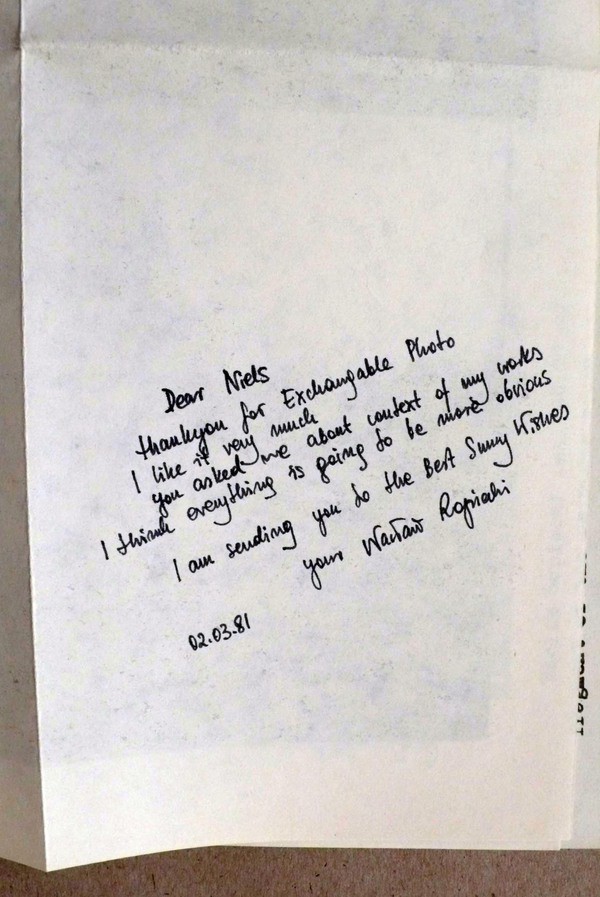 Dear Niels
thankyou for Exchangable Photo
I like it very much
you asked me about context of my works
I think everything is going to be more obvious
I am sending you to the Best Sunny Wishes
your Wacław Ropiecki
02.03.81